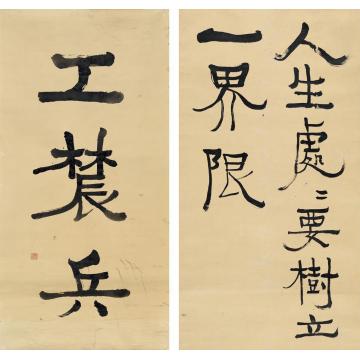 人生處〻要樹立
一界限
工辳兵